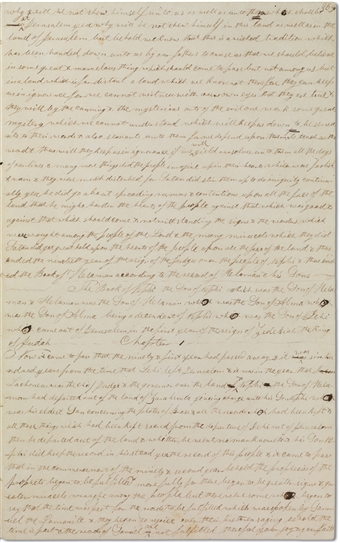 why will he not shew himself unto us as well as unto them which shall be
at Jerusalem yea why will he not shew himself in this land as well as in the
land of Jerusalem but behold we know that this is a wicked tradition which
has been handed down unto us by our fathers to cause us that we should believe
in some great & marvelous thing which should come to pass but not among us but
in a land which is far distant a land which we know not therefore they can keep
us in ignorance for we cannot witness with our own eyes that they are true &
they will by the cunning & the mysterious arts of the evil one work some great
mystery which we cannot understand which will keep us down to be servants
to their words & also servants unto them for we depend upon them to teach us the
word & thus will they keep us in ignorance if we will yield ourselves unto them all the days
of our lives & many more things did the people imagine up in their hearts which was foolish
& vain & they were much disturbed for Satan did stir them up to do iniquity continu
ally yea he did go about spreading rumors & contentions upon all the face of the
land that he might harden the hearts of the people against that which was good &
against that which should come & notwithstanding the signs & the wonders which
were wrought among the people of the Lord & the many miracles which they did
Satan did get great hold upon the hearts of the people upon all the face of the land & thus
ended the ninetieth year of the reign of the Judges over the people of Nephi & thus end
ed the Book of Helaman according to the record of Helaman & his Sons
The Book of Nephi the Son of Nephi which was the Son of Hela
man & Helaman was the Son of Helaman which was the Son of Alma who
was the Son of Alma being a descendant of Nephi who was the Son of Lehi
who came out of Jerusalem in the first year of the reign of Zedekiah the King
of Judah
Chapter 1
Now it came to pass that the ninety & first year had passed away & it was six hun
dred years from the time that Lehi left Jerusalem & it was in the year that
Lachoneus was the chief Judge & the governor over the land & Nephi the Son of Hela
man had departed out of the land of Zarahemla giving charge unto his Son Nephi
was his eldest Son concerning the plates of Brass & all the records which had been kept &
all those things which had been kept sacred from the departure of Lehi out of Jerusalem
then he departed out of the land & whither he went no man knoweth & his Son Ne
phi did keep the record in his stead yea the record of this people & it came to pass
that in the commencement of the ninety & second year behold the prophecies of the
prophets began to be fulfilled more fully for there began to be greater signs & gr
eater miracles wrought among the people but there were some which began to
say that the time was past for the words to be fulfilled which was spoken by Samu
el the Lamanite & they began to rejoice over their brethren saying behold the
time is past & the words of Samuel are not fulfilled